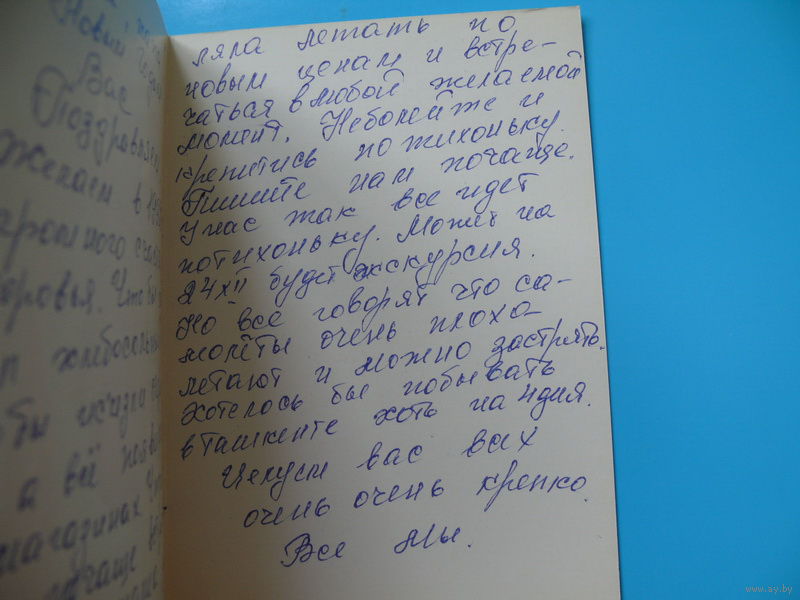 Новым
Вас
Поздравляем
желаем в
огромного счас
доровья. Что бы
хлебосоль
а всё
магазинах
ляла летать по
новым ценам и встре-
чаться в любой желаемой
момент. Неболейже и
крепитись потихоньку.
Пишите нам почаще.
Унас так все идет
потихоньку. Может на
24 XII будет экскурсия.
Но все говорят что са-
молёты очень плоха-
летают и можно застрять.
Хотелось бы побывать
в ташкенте хоть на 4 дня.
Целуем вас всех
очень очень крепко.
Все мы.
www.ay.by